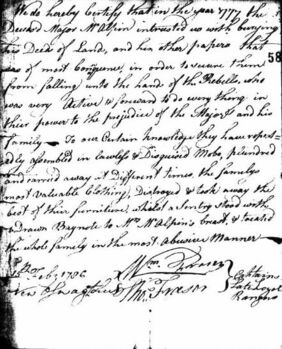 We do hereby Certify that in the year 1777 the
Deceased Major McAlpin intrusted us with burying
his Deeds of Land, and his other papers that
was of most consequence, in order to secure them
from falling into the hands of the Rebells, who
58
was very Active & forward to do every thing in
their power to the prejudice of the Major & and his
family - To our Certain Knowledge they have repeat-
edly assembled in Lawless & Disguised Mobs, plundred
and carried away at Different times, the familys
most valuable Clothing, Distroyed & took away the
best of their furniture, whilst a Sentry stood with
a Drawn Bayonet to Mrs McAlpin's breast, & treated
the whole family in the most abusive Manner
Feby 1786
Wm Fraser
Thos Fraser
Captains
Late Loyal
Rangers